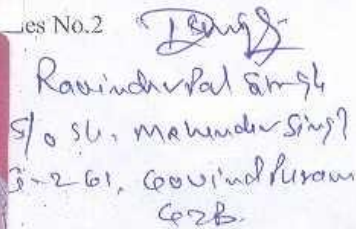 es No.2
Ravinder Pal Singh
S/o Sh. Mahender Singh
G-261, Govind Puram
GZB.